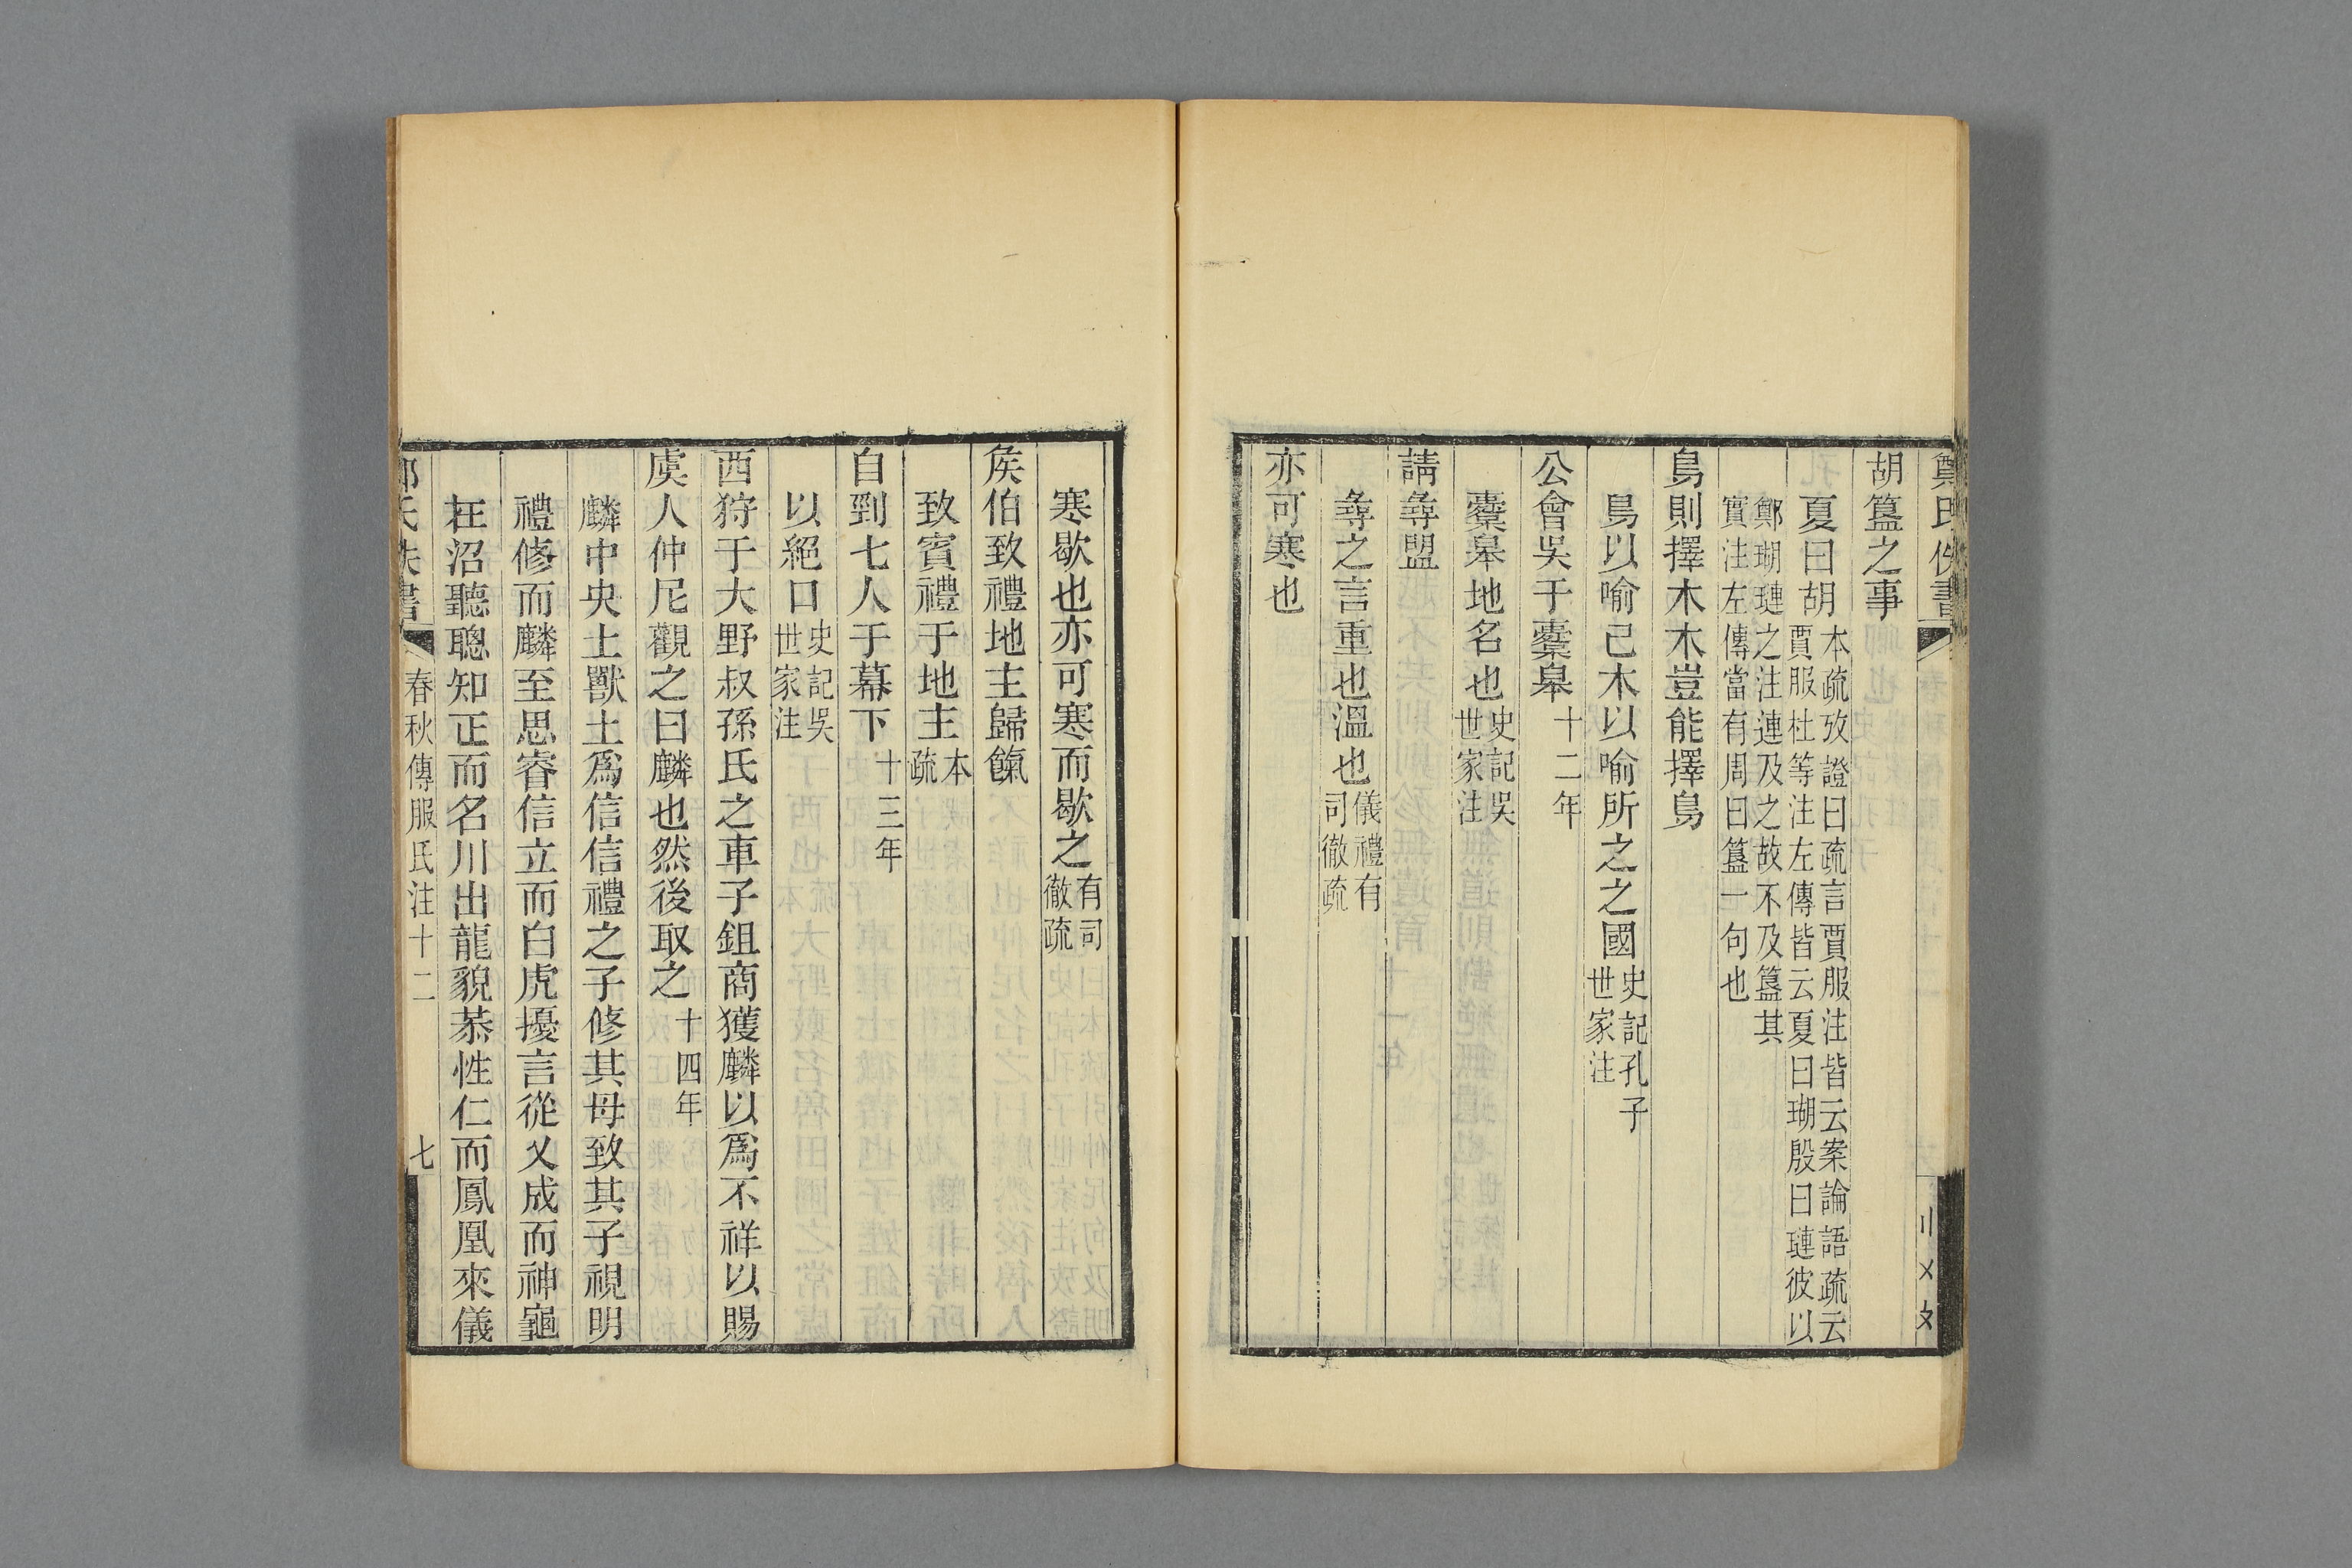 鄭氏佚書
胡簋之事
夏曰胡本疏攷證曰疏言賈服注皆云案論語疏云
賈服杜等注左傳皆云夏曰瑚殷曰璉彼以
鄭瑚璉之注連及之故不及簋其
實注左傳當有周曰簋一句也
鳥則擇木木豈能擇鳥
鳥以喻己木以喻所之之國史記孔子
世家注
公會吳于橐皋十二年
橐皋地名也史記吳
世家注
請尋盟
尋之言重也溫也儀禮有
司徹疏
亦可寒也
寒歇也亦可寒而歇之有司
徹疏
侯伯致禮地主歸餼
致賓禮于地主本
疏
自剄七人于幕下十三年
以絕口史記吳
世家注
西狩于大野叔孫氏之車子鉏商獲麟以爲不祥以賜
虞人仲尼觀之曰麟也然後取之十四年
麟中央土獸土爲信信禮之子修其母致其子視明
禮修而麟至思睿信立而白虎擾言從乂成而神龜
在沼聽聰知正而名川出龍貌恭性仁而鳳凰來儀
氏佚書 春秋傳服氏注十二 七